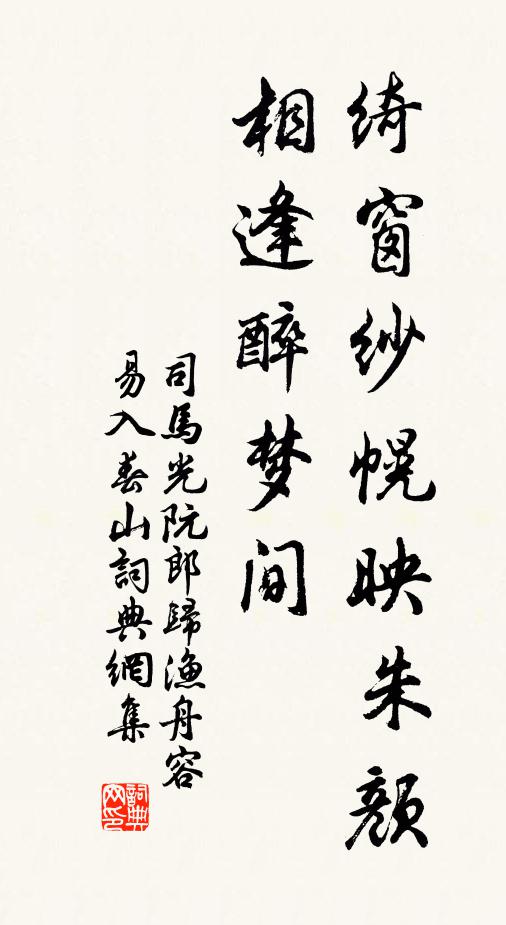 绮窗纱幌映朱颜
相逢醉梦间
司馬光阮郎歸漁舟容
易入春山詞典網集
詞典网印